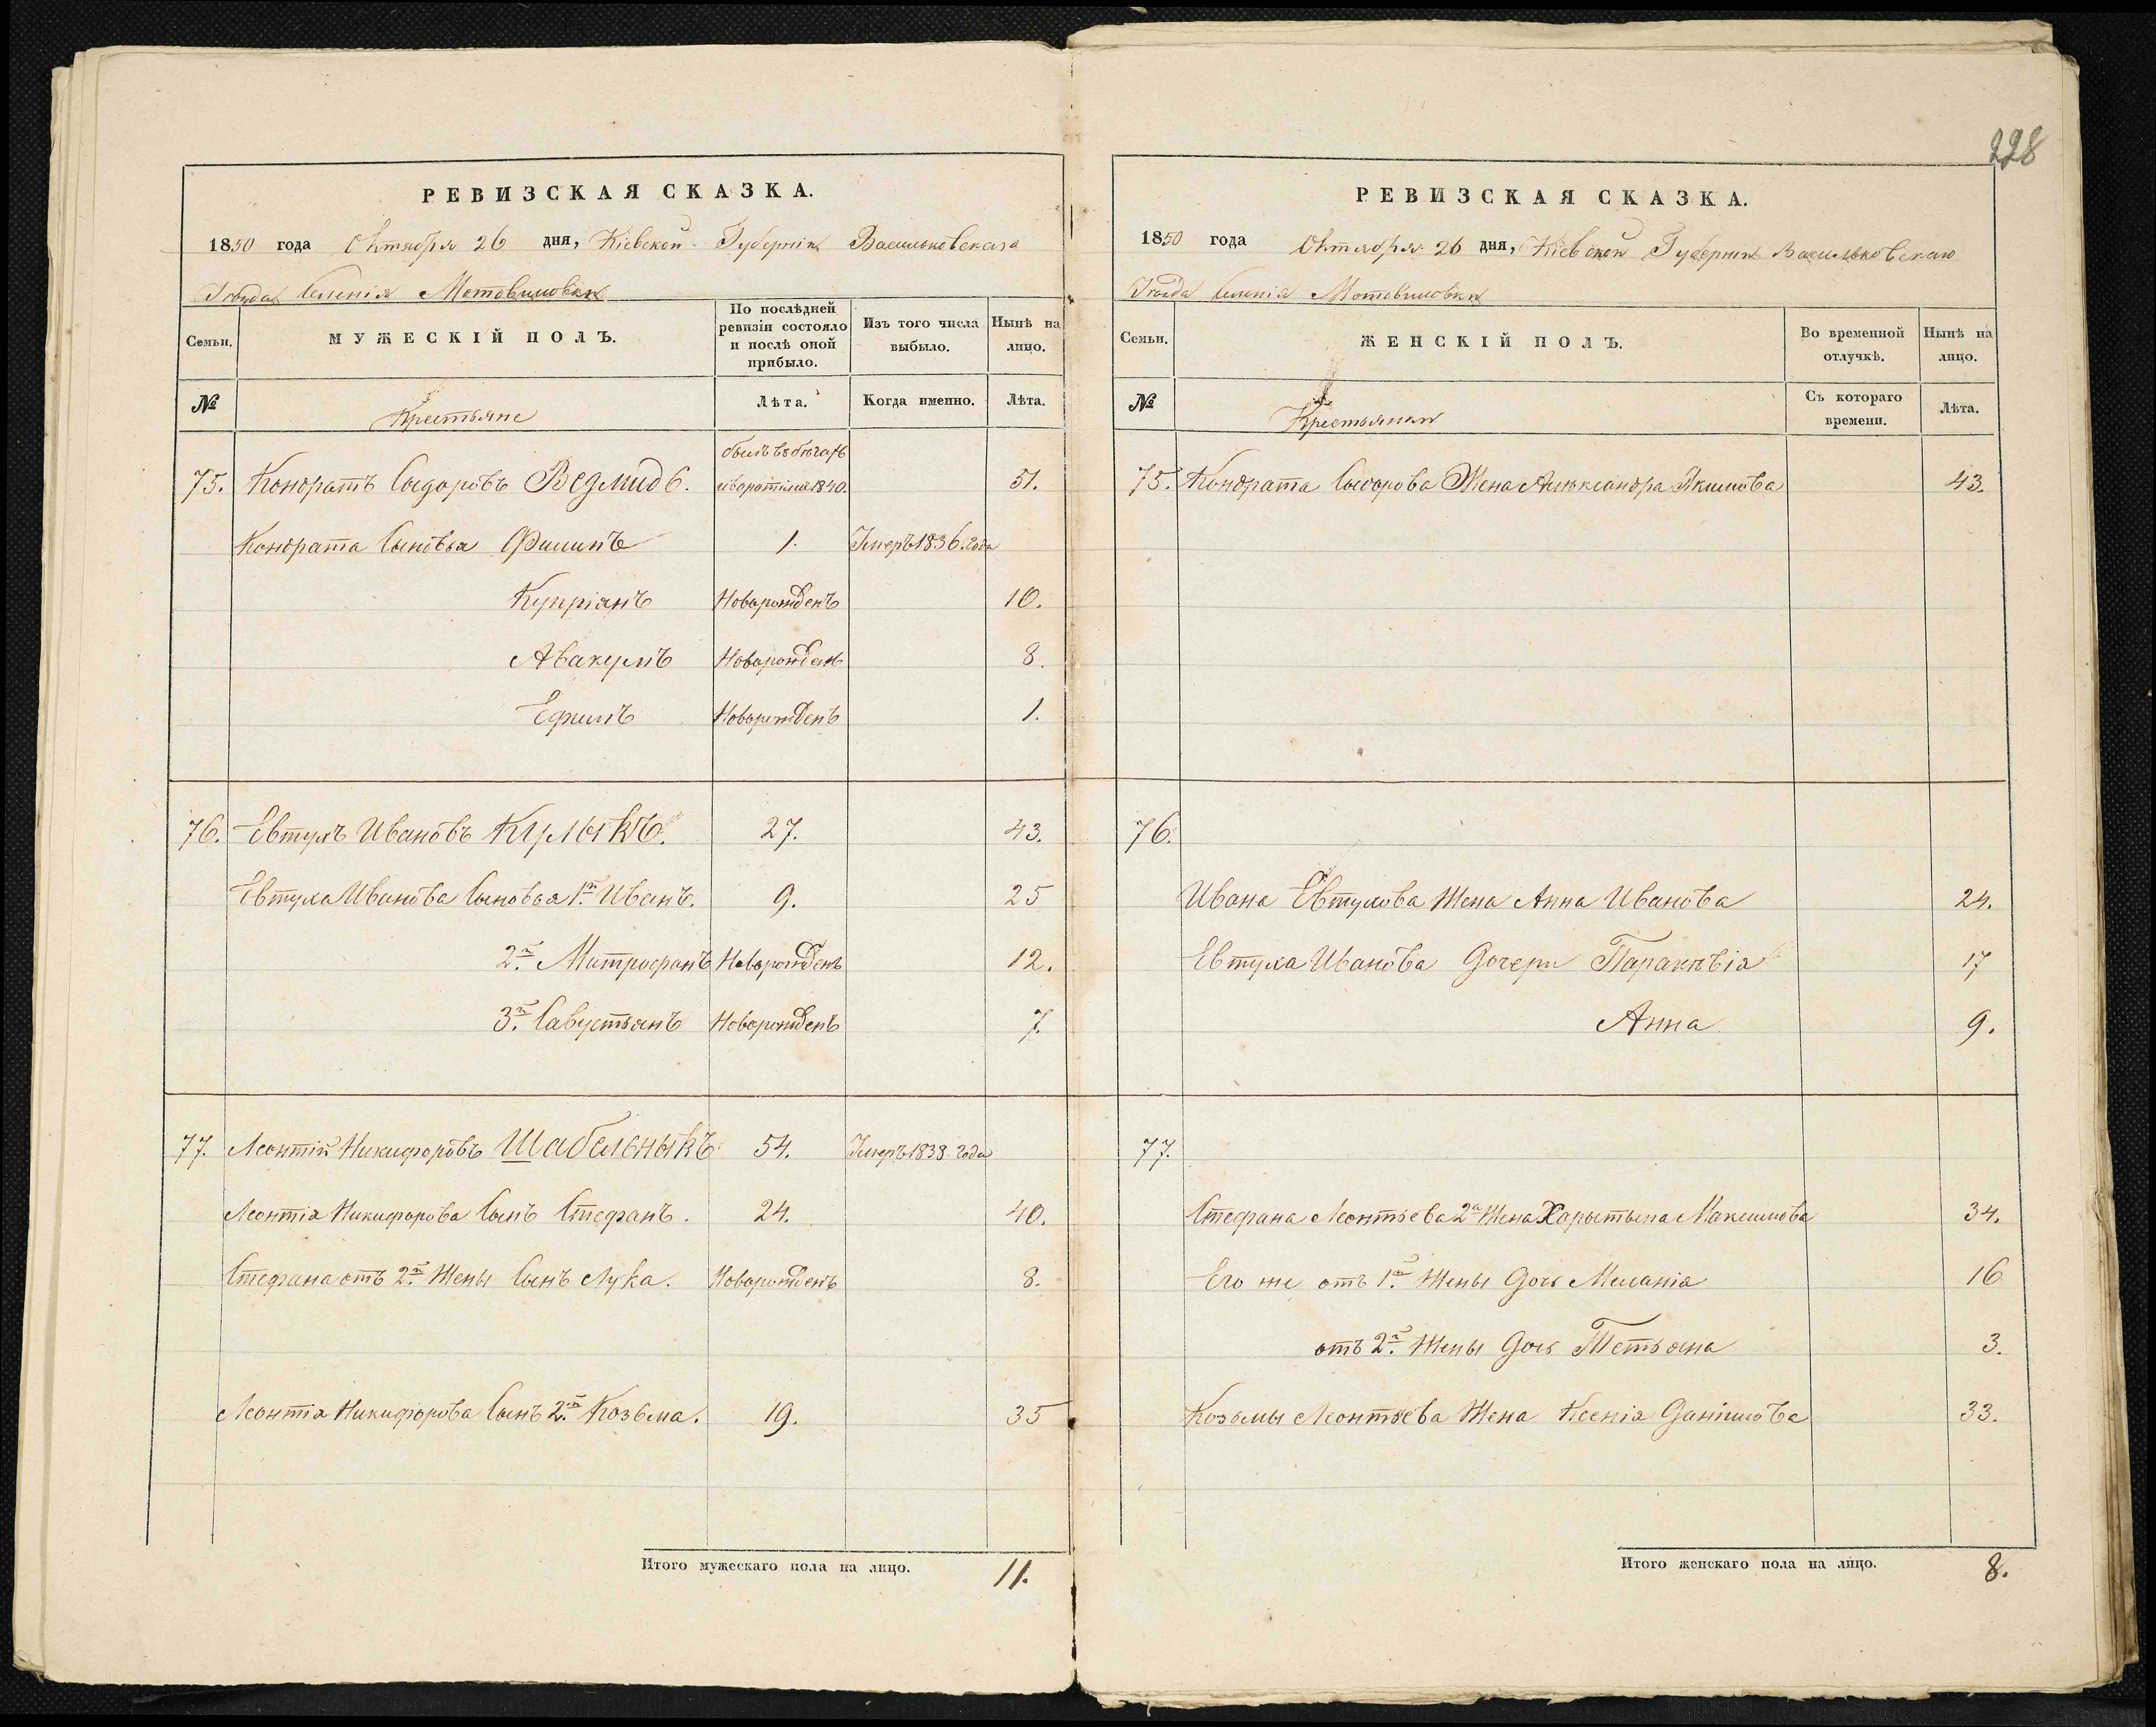 228
РЕВИЗСКАЯ СКАЗКА.
1850 года Октября 26 дня, Кіевской Губерніи Васильковскаго
Уезда Селенія Мотовиловки
Семьи. МУЖЕСКІЙ ПОЛЪ. По послѣдней ревизіи состояло и послѣ оной прибыло. Изъ того числа выбыло. Нынѣ на лицо.
№ Крестьяне Лѣта. Когда именно. Лѣта.
былъ въ бѣгахъ
75. Кондратъ Сыдоровъ Ведмидь. и воротился 1840. 51.
Кондрата Сыновья Филипъ 1. Умеръ 1836. года
Купріянъ Новорожденъ 10.
Авакумъ Новорожденъ 8.
Ефимъ Новорожденъ 1.
76. Евтухъ Ивановъ Курлыкъ. 27. 43.
Евтуха Иванова Сыновья 1й Иванъ. 9. 25
2й Митрофанъ Новорожденъ 12.
3й Савустьянъ Новорожденъ 7.
77. Леонтій Никифоровъ Шабельныкъ 54. Умеръ 1838. года
Леонтія Никифорова Сынъ Стефанъ. 24. 40.
Стефана отъ 2й Жены Сынъ Лука. Новорожденъ 8.
Леонтія Никифорова Сынъ 2й Козьма. 19. 35
Итого мужескаго пола на лицо. 11.
РЕВИЗСКАЯ СКАЗКА.
1850 года Октября 26 дня, Кіевской Губерніи Васильковскаго
Уезда Селенія Мотовиловки
Семьи. ЖЕНСКІЙ ПОЛЪ. Во временной отлучкѣ. Нынѣ на лицо.
№ Крестьянки Съ котораго времени. Лѣта.
75. Кондрата Сыдорова Жена Александра Якимова 43.
76.
Ивана Евтухова Жена Анна Иванова 24.
Евтуха Иванова Дочери Параскѣвія 17
Анна 9.
77.
Стефана Леонтьева 2а Жена Харытына Максимова 34.
Его же отъ 1й Жены Дочь Меланія 16
отъ 2й Жены Дочь Тетьяна 3.
Козьмы Леонтьева Жена Ксенія Данілова 33.
Итого женскаго пола на лицо. 8.